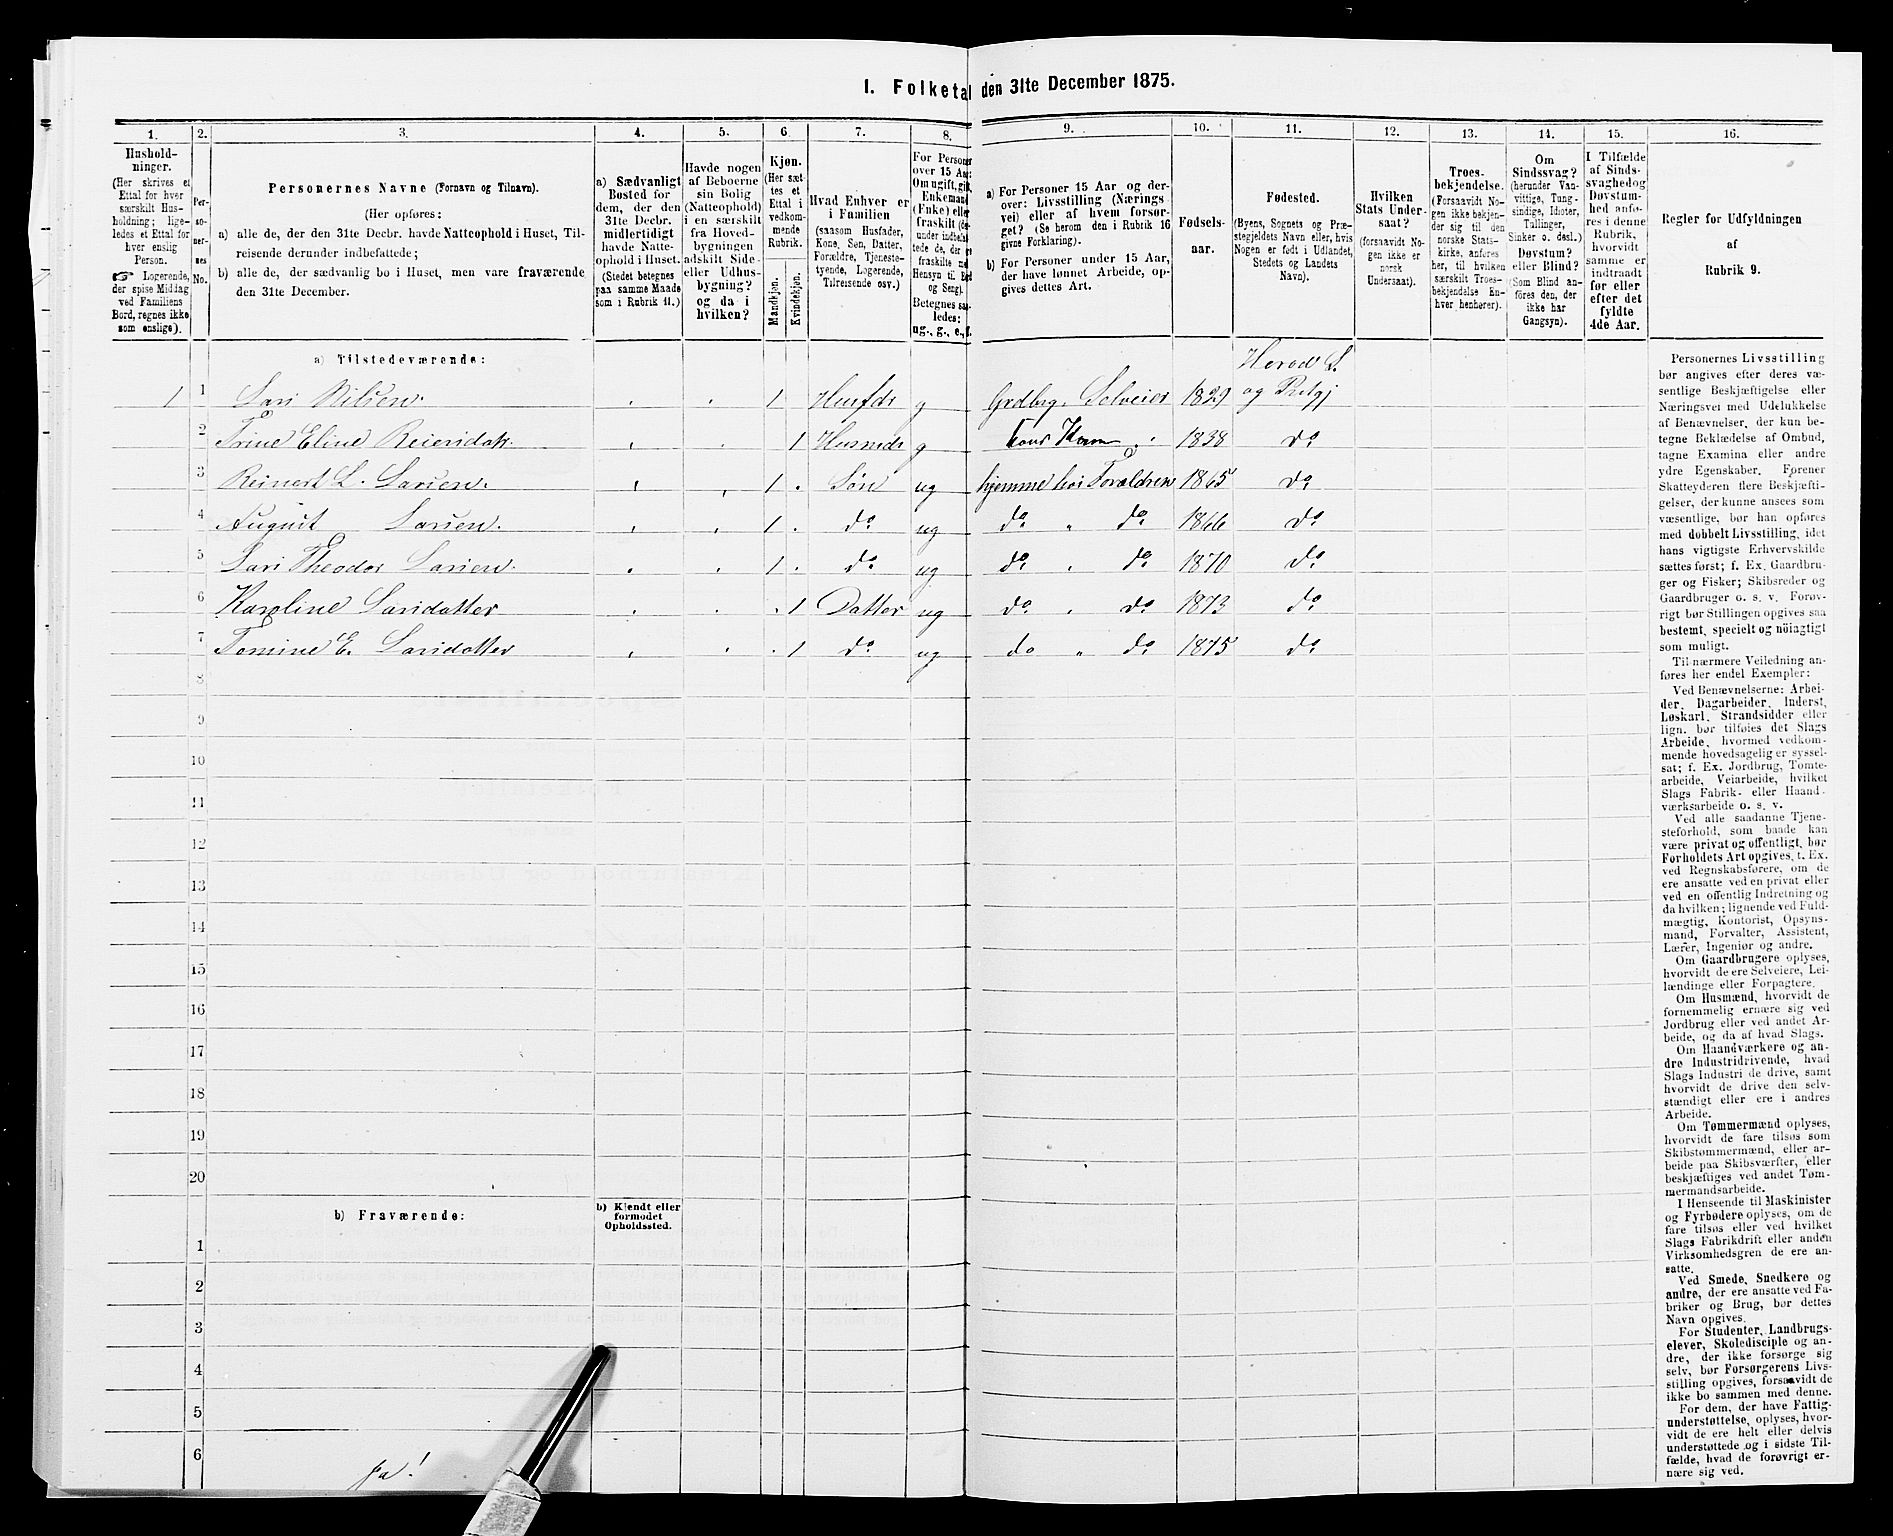 I. Folketal den 31te December 1875.
1. 2. 3. 4. 5. 6. 7. 8. 9. 10. 11. 12. 13. 14. 15. 16.
Hushold-
ninger.
(Her skrives et
Ettal for hver
særskilt Hus-
holdning; lige-
ledes et Ettal for
hver enslig
Person.
☞ Logerende,
der spise Middag
ved Familiens
Bord, regnes ikke
som enslige).
Per-
sone-
ner-
nes
No.
Personernes Navne (Fornavn og Tilnavn).
(Her opføres:
a) alle de, der den 31te Decbr. havde Natteophold i Huset, Til-
reisende derunder indbefattede;
b) alle de, der sædvanlig bo i Huset, men vare fraværende
den 31te December.
a) Sædvanligt
Bosted for
dem, der den
31te Decbr.
midlertidigt
havde Natte-
ophold i Huset.
(Stedet betegnes
paa samme Maade
som i Rubrik 11.)
Havde nogen
af Beboerne
sin Bolig
(Natteophold)
i en særskilt
fra Hoved-
bygningen
adskilt Side-
eller Udhus-
bygning?
og da i
hvilken?
Kjøn.
(Her sæt-
tes et
Ettal i
vedkom-
mende
Rubrik.
Mandkjøn.
Kvindekjøn.
Hvad Enhver er
i Familien
(saasom Husfader,
Kone, Søn, Datter,
Forældre, Tjeneste-
tyende, Logerende,
Tilreisende osv.)
For Personer
over 15 Aar:
Om ugift, gift,
Enkemand
(Enke) eller
fraskilt
under indbefat-
tede de, der ere
fraskilte med
Hensyn til Bord
og Seng).
Betegnes saa-
ledes:
ug., g., e., f.
a) For Personer 15 Aar og der-
over: Livsstilling (Nærings-
vei) eller af hvem forsør-
get? (Se herom den i Rubrik 16
givne Forklaring).
b) For Personer under 15 Aar,
der have lønnet Arbeide, op-
gives dettes Art.
Fødsels-
aar.
Fødested.
(Byens, Sognets og Præ-
stegjeldets Navn eller, hvis
Nogen er født i Udlandet,
Stedets og Landets
Navn).
Hvilken
Stats Under-
saat?
(forsaavidt No-
gen ikke er
norsk
Undersaat).
Troes-
bekjendelse.
(Forsaavidt No-
gen ikke bekjen-
der sig til den
norske Stats-
kirke, anføres
her, til hvilken
særskilt Troes-
bekjendelse En-
hver henhører).
Om
Sindssvag?
(herunder Van-
vittige, Tung-
sindige, Idioter,
Tullinger,
Sinker o. desl.)
Døvstum?
eller Blind?
(Som Blind an-
føres den, der
ikke har
Gangsyn).
I Tilfælde
af Sinds-
svaghed og
Døvstum-
hed anfø-
res i denne
Rubrik,
hvorvidt
samme er
indtraadt
før eller
efter det
fyldte
4de Aar.
Regler for Udfyldningen
af
Rubrik 9.
a) Tilstedeværende:
Herod S.
1 1 Lars Nilsen. 1 Husfdr g Grdbrg. Selveier 1829 og Prstgj
2 Trine Eline Reiersdatr. 1 Husmdr g hans Kone 1838 do
3 Reinert L. Larsen. 1 Søn ug hjemme hos Forældren 1865 do
4 August Larsen. 1 do ug do " do 1866 do
5 Lars Theodor Larsen. 1 do ug do " do 1870 do
6 Karoline Larsdatter 1 Datter ug do " do 1873 do
7 Tomine E. Larsdatter 1 do ug do " do 1875 do
8
9
10
11
12
13
14
15
16
17
18
19
20
b) Fraværende:
b) Kjendt eller
formodet
Opholdssted.
1
2
3
4
5
6
Ja!
Personernes Livsstilling
bør angives efter deres væ-
sentlige Beskjæftigelse eller
Næringsvei med Udelukkelse
af Benævnelser, der kun be-
tegne Beklædelse af Ombud,
tagne Examina eller andre
ydre Egenskaber. Forener
Skatteyderen flere Beskjæfti-
gelser, der kunne ansees som
væsentlige, bør han opføres
med dobbelt Livsstilling, idet
hans vigtigste Erhvervskilde
sættes først; f. Ex. Gaardbru-
ger og Fisker; Skibsreder og
Gaardbruger o. s. v. Forøv-
rigt bør Stillingen opgives saa
bestemt, specielt og nöiagtigt
som muligt.
Til nærmere Veiledning an-
føres her endel Exempler:
Ved Benævnelserne: Arbei-
der, Dagarbeider, Inderst,
Løskarl, Strandsidder eller
lign. bør tilføies det Slags
Arbeide, hvormed vedkom-
mende hovedsagelig er syssel-
sat; f. Ex. Jordbrug, Tomte-
arbeide, Veiarbeide, hvilket
Slags Fabrik- eller Haand-
værksarbeide o. s. v.
Ved alle saadanne Tjene-
steforhold, som baade kan
være privat og offentligt, bør
Forholdets Art opgives, t. Ex.
ved Regnskabsførere, om de
ere ansatte ved en privat eller
ved en offentlig Indretning og
da hvilken; lignende ved Fuld-
mægtig, Kontorist, Opsyns-
mand, Forvalter, Assistent,
Lærer, Ingeniør og andre.
Om Gaardbrugere oplyses,
hvorvidt de ere Selveiere, Lei-
lændinge eller Forpagtere.
Om Husmænd, hvorvidt de
fornemmelig ernære sig ved
Jordbrug eller ved andet Ar-
beide, og da af hvad Slags.
Om Haandværkere og an-
dre Industridrivende, hvad
Slags Industri de drive, samt
hvorvidt de drive den selv-
stændigt eller ere i andres
Arbeide.
Om Tømmermænd oplyses,
hvorvidt de fare tilsøs som
Skibstømmermænd, eller ar-
beide paa Skibsværfter, eller
beskjæftiges ved andet Tøm-
mermandsarbeide.
I Henseende til Maskinister
og Fyrbødere oplyses, om de
fare tilsøs eller ved hvilket
Slags Fabrikdrift eller anden
Virksomhedsgren de ere an-
satte.
Ved Smede, Snedkere og
andre, der ere ansatte ved Fa-
briker og Brug, bør dettes
Navn opgives.
For Studenter, Landbrugs-
elever, Skoledisciple og an-
dre, der ikke forsørge sig
selv, bør Forsørgerens Livs-
stilling opgives, forsaavidt de
ikke bo sammen med denne.
For dem, der have Fattig-
understøttelse, oplyses, hvor-
vidt de ere helt eller delvis
understøttede og i sidste Til-
fælde, hvad de forøvrigt er-
nære sig ved.